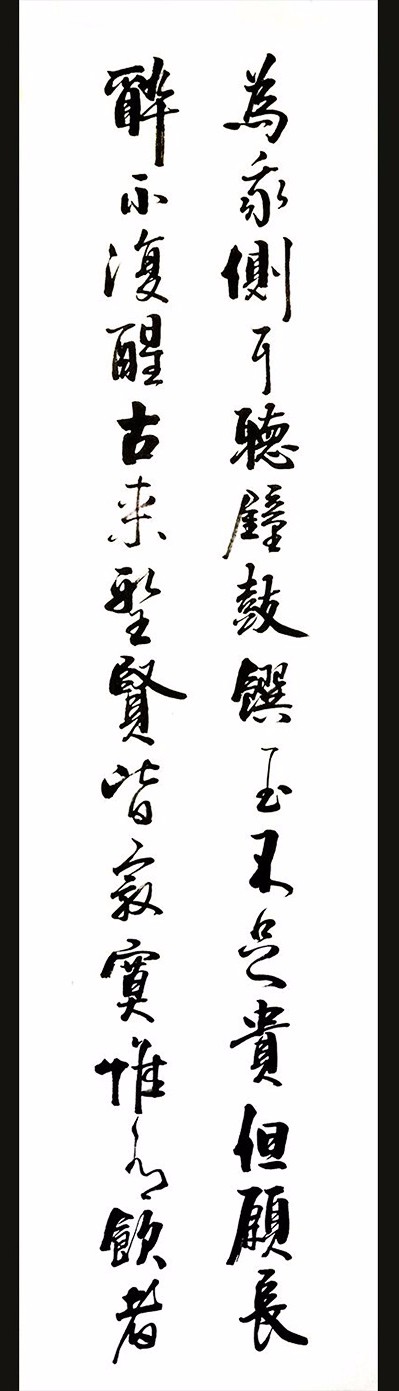 為我側耳聽鐘鼓饌玉不足貴但願長
醉不復醒古來聖賢皆寂寞惟有飲者